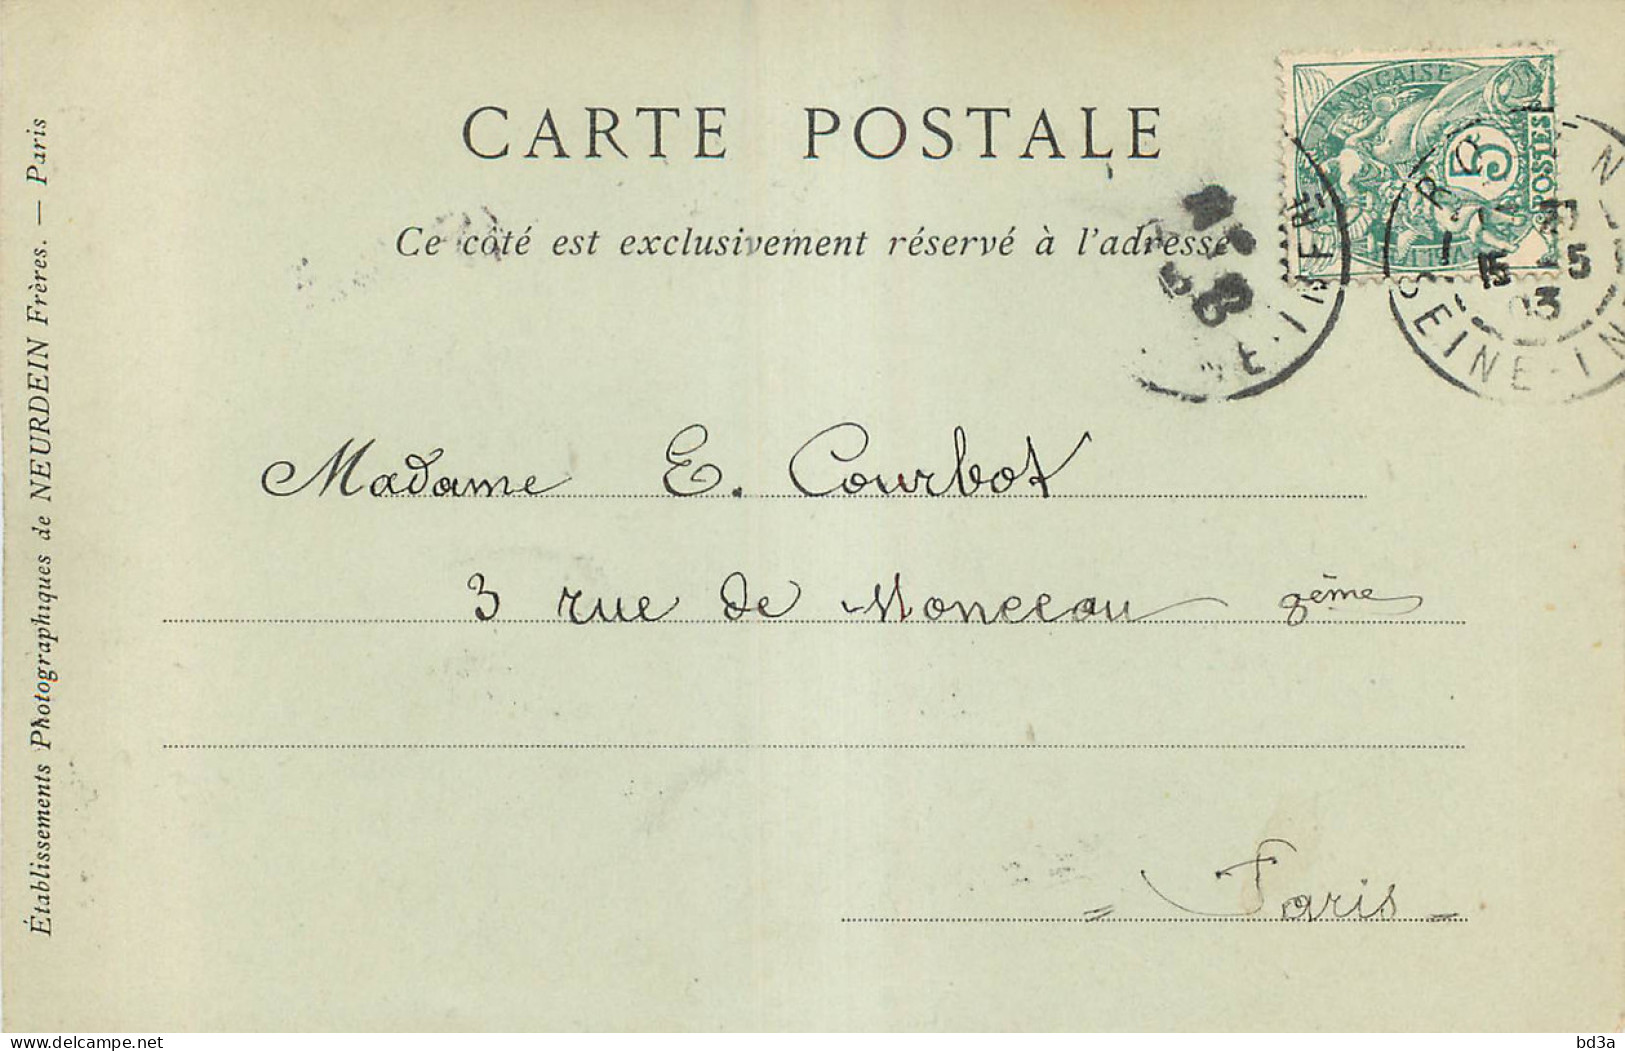 CARTE POSTALE
Ce côté est exclusivement réservé à l'adresse
Établissements Photographiques de NEURDEIN Frères. — Paris
FRANÇAISE
5
POSTES
SEINE-IN
03
Madame E. Courbot
3 rue de Monceau 8ème
= Paris -
delcampe.net
bd3a